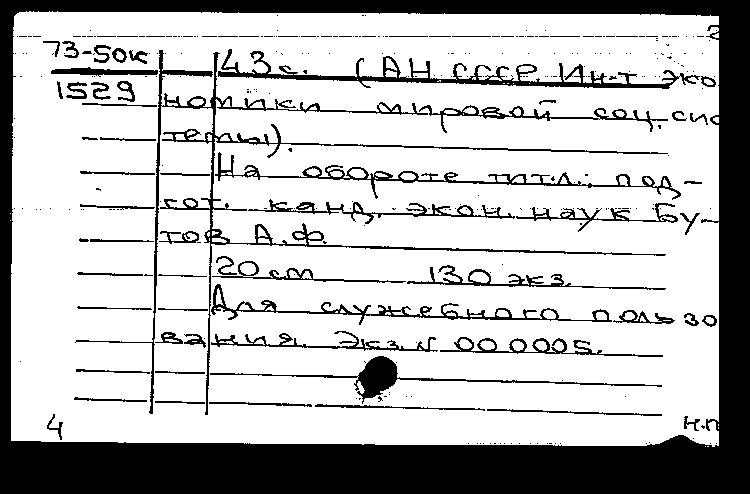 2
73-50к 43 с. (АН СССР. Ин-т эко
1529 номики мировой соц. сис
темы).
На обороте тит.л.: под-
гот. канд. экон. наук Бу-
тов А.Ф.
20 см 130 экз.
Для служебного пользо
вания. Экз. № 000005.
4 н.п